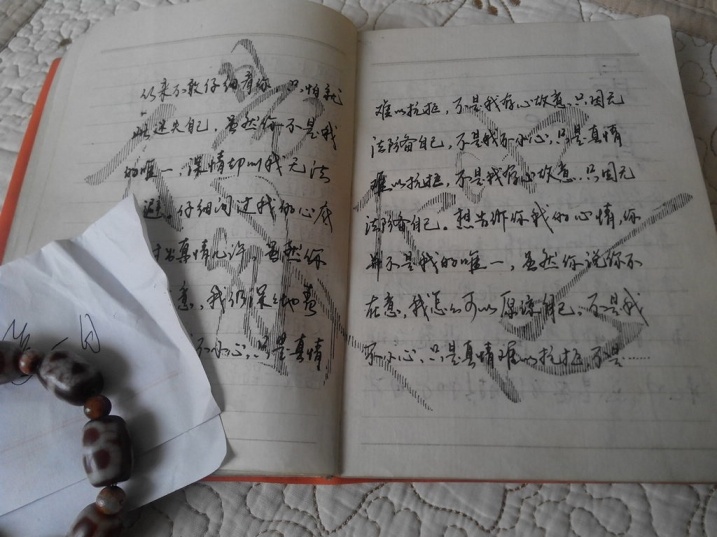 从来不敢仔细看你，只怕就
此迷失自己，虽然你不是我
的唯一，深情却叫我无法
逃避，仔细问过我的心底
真情几许，虽然你
意，我仍深深地
不小心，只是真情
难以抗拒，不是我存心故意，只因无
法防备自己，不是我不小心，只是真情
难以抗拒，不是我存心故意，只因无
法防备自己。想告诉你我的心情，你
并不是我的唯一，虽然你说你不
在意，我怎么可以原谅自己，不是我
不小心，只是真情难以抗拒，不是……
一月